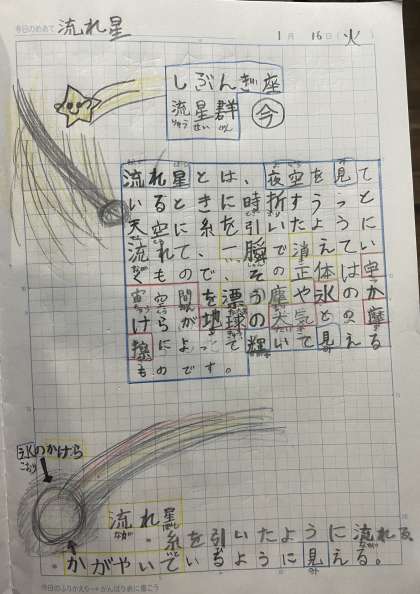 今日のめあて 流れ星
1月16日(火)
しぶんぎ座
流星群 今
りゅう せい ぐん
流れ星とは、夜空を見て
いるときに時折すうっと
天空に糸を引いたように
流れて、一瞬で消えてい
くもの。その正体は宇
宙空間を漂う塵や氷のか
けらが地球の大気との摩
擦によって輝いて見える
ものです。
氷のかけら
こおり
流れ星
なが ぼし
糸を引いたように流れる
かがやいているように見える。
今日のふりかえり…がんばり めに書こう